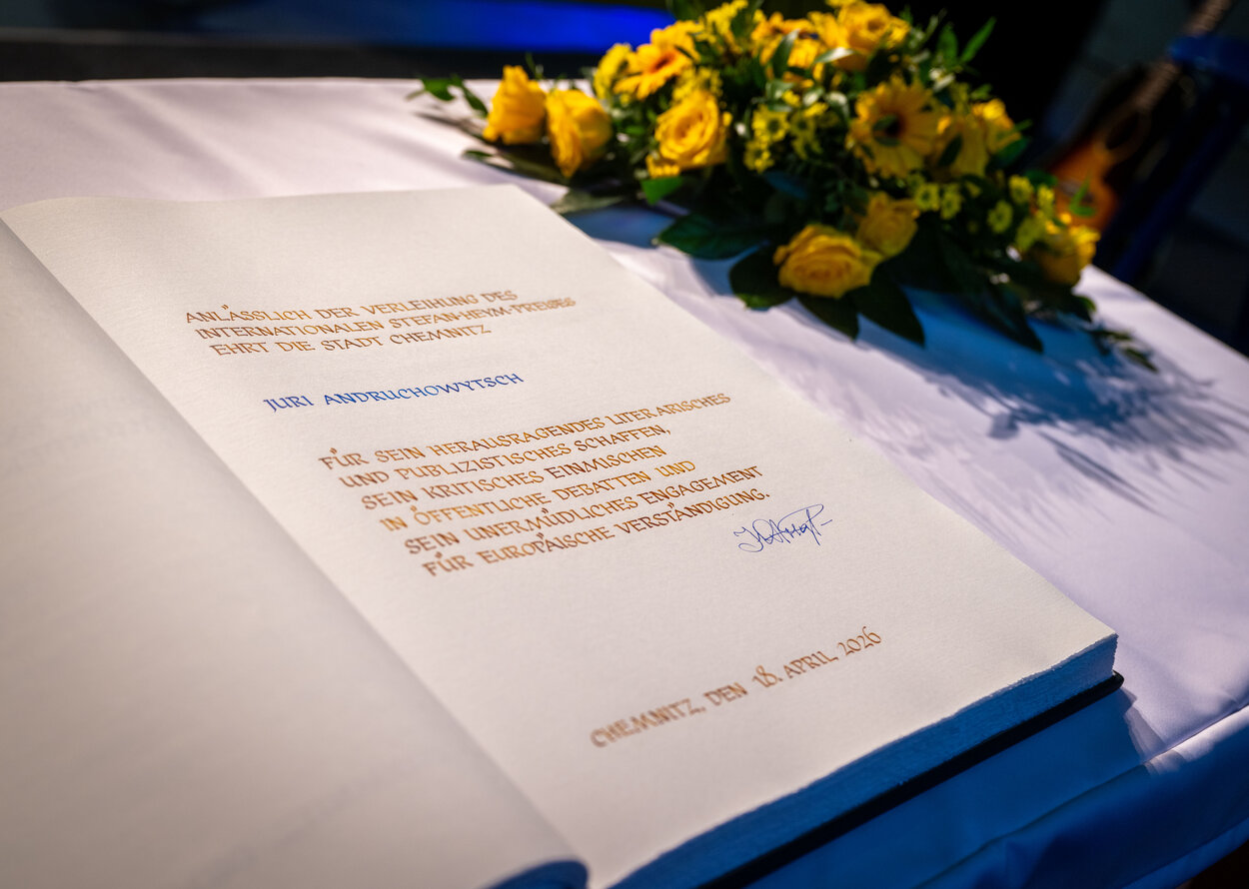 ANLÄSSLICH DER VERLEIHUNG DES
INTERNATIONALEN STEFAN-HEYM-PREISES
EHRT DIE STADT CHEMNITZ
JURI ANDRUCHOWYTSCH
FÜR SEIN HERAUSRAGENDES LITERARISCHES
UND PUBLIZISTISCHES SCHAFFEN,
SEIN KRITISCHES EINMISCHEN
IN ÖFFENTLICHE DEBATTEN UND
SEIN UNERMÜDLICHES ENGAGEMENT
FÜR EUROPÄISCHE VERSTÄNDIGUNG.
CHEMNITZ, DEN 18. APRIL 2026